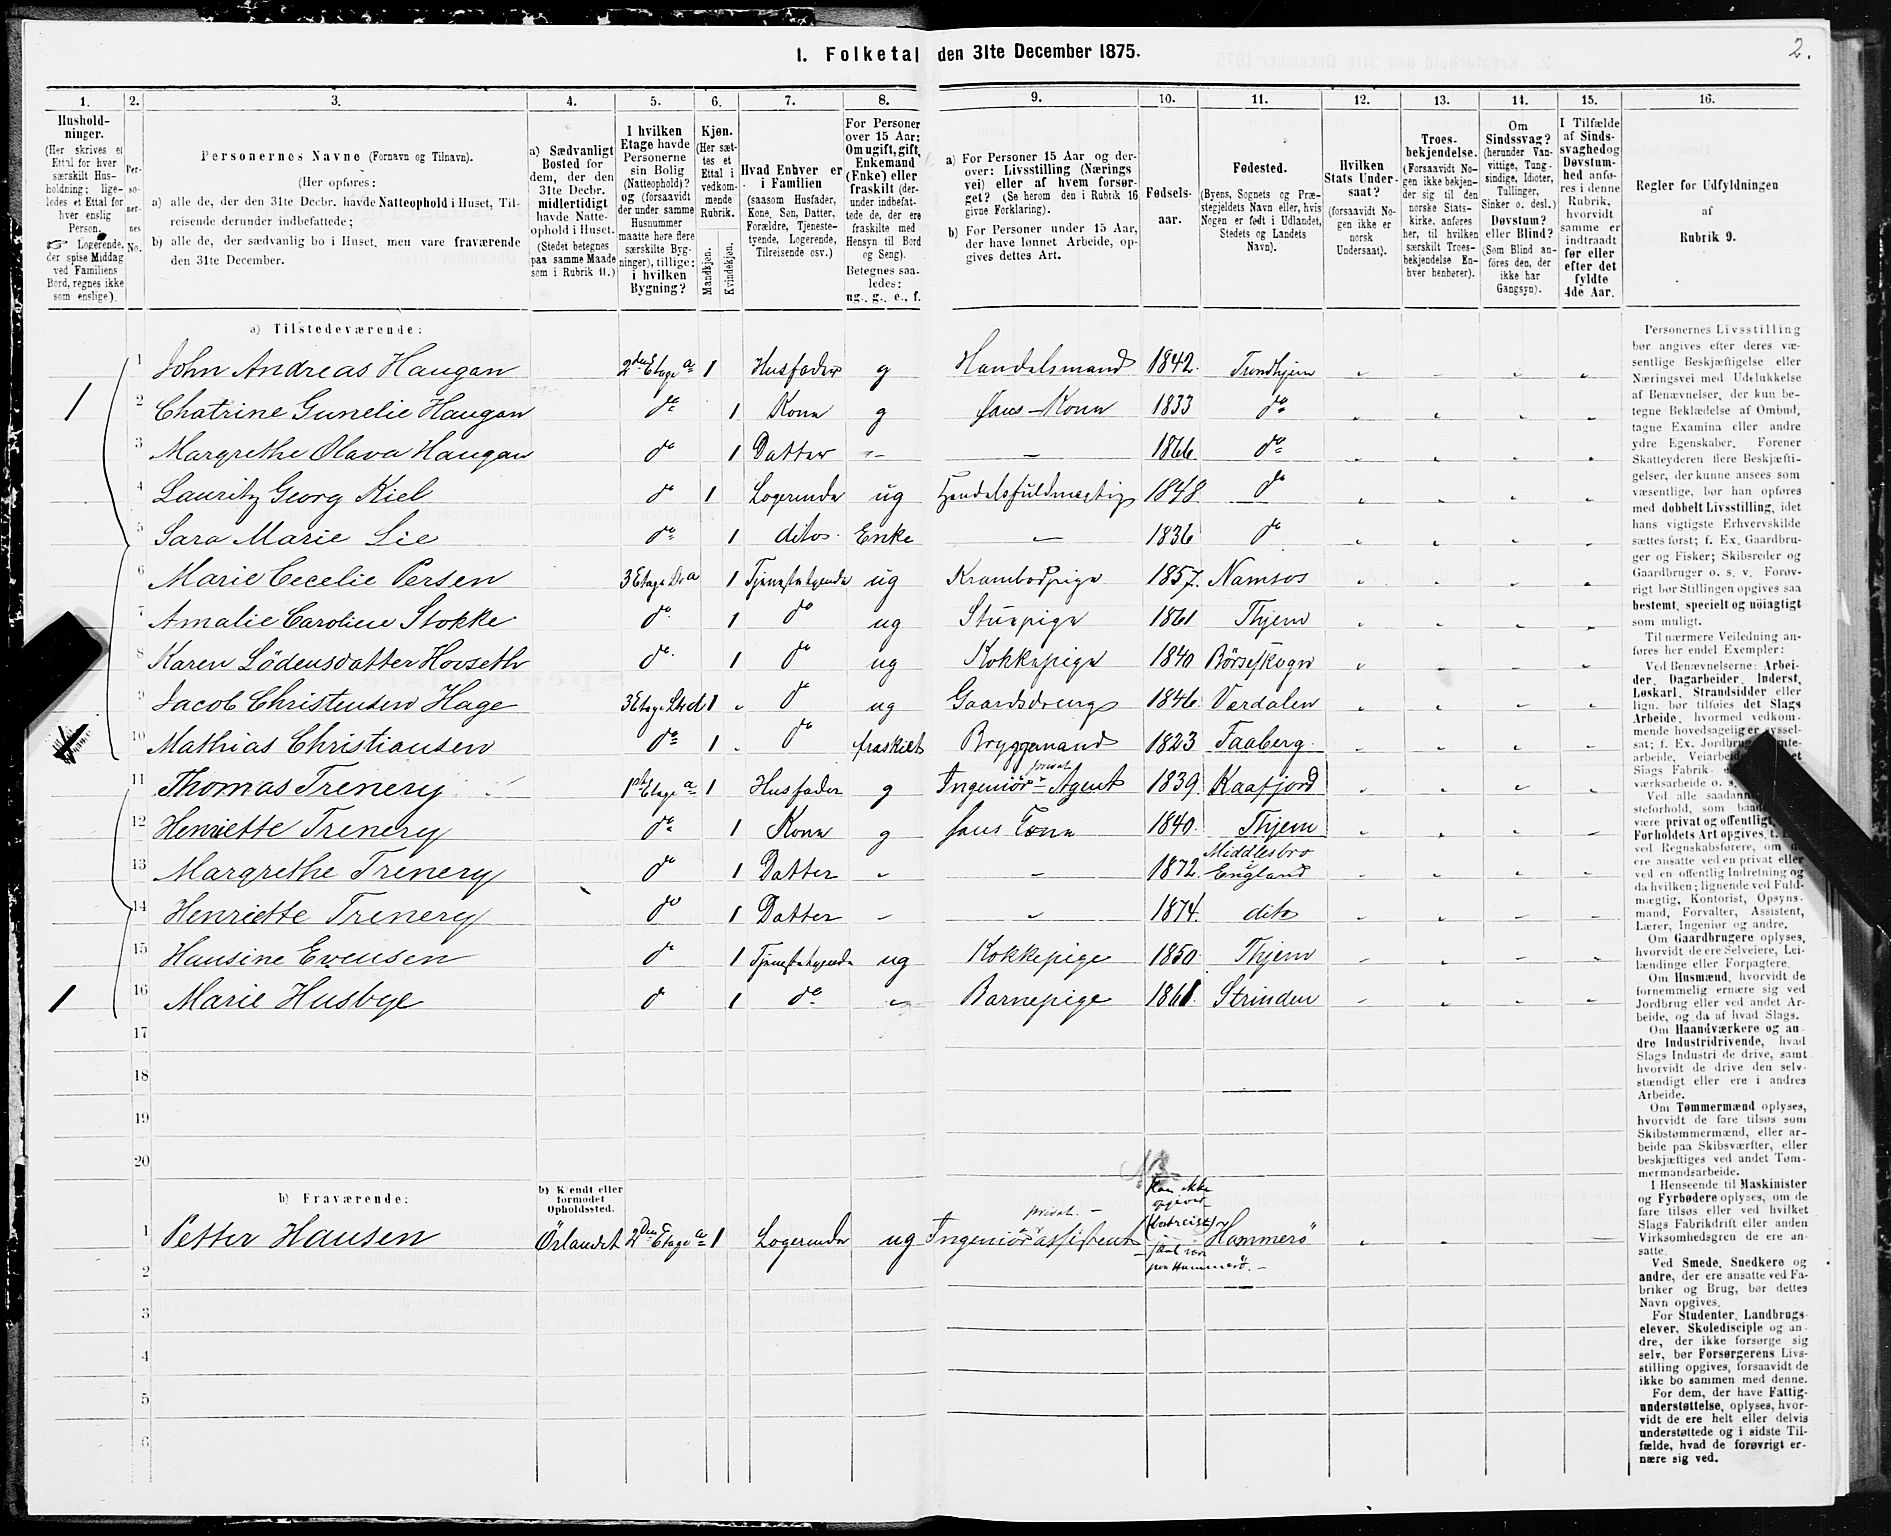 1. Folketal den 31te December 1875.
2.
1. 2. 3. 4. 5. 6. 7. 8. 9. 10. 11. 12. 13. 14. 15. 16.
Hushold-
ninger.
(Her skrives et
Ettal for hver
særskilt Hus-
holdning; lige-
ledes et Ettal for
hver enslig
Person.
☞ Logerende,
der spise Middag
ved Familiens
Bord, regnes ikke
som enslige).
Per-
so-
ner-
nes
No.
Personernes Navne (Fornavn og Tilnavn).
(Her opføres:
a) alle de, der den 31te Decbr. havde Natteophold i Huset, Til-
reisende derunder indbefattede;
b) alle de, der sædvanlig bo i Huset, men vare fraværende
den 31te December.
a) Sædvanligt
Bosted for
dem, der den
31te Decbr.
midlertidigt
havde Natte-
ophold i Huset.
(Stedet betegnes
paa samme Maade
som i Rubrik 11.)
I hvilken
Etage havde
Personerne
sin Bolig
(Natteophold)?
og (forsaavidt
der under samme
Husnummer
maatte høre flere
særskilte Byg-
ninger), tillige:
i hvilken
Bygning?
Kjøn.
(Her sæt-
tes et
Ettal i
vedkom-
mende
Rubrik.
Mandkjøn.
Kvindekjøn.
Hvad Enhver er
i Familien
(saasom Husfader,
Kone, Søn, Datter,
Forældre, Tjeneste-
tyende, Logerende,
Tilreisende osv.)
For Personer
over 15 Aar:
Om ugift, gift,
Enkemand
(Enke) eller
fraskilt (der-
under indbefat-
tede de, der ere
fraskilte med
Hensyn til Bord
og Seng).
Betegnes saa-
ledes:
ug., g., e., f.
a) For Personer 15 Aar og der-
over: Livsstilling (Nærings
vei) eller af hvem forsør-
get? (Se herom den i Rubrik 16
givne Forklaring).
b) For Personer under 15 Aar,
der have lønnet Arbeide, op-
gives dettes Art.
Fødsels-
aar.
Fødested.
(Byens, Sognets og Præ-
stegjeldets Navn eller, hvis
Nogen er født i Udlandet,
Stedets og Landets
Navn).
Hvilken
Stats Under-
saat?
(forsaavidt No-
gen ikke er
norsk
Undersaat).
Troes-
bekjendelse.
(Forsaavidt No-
gen ikke bekjen-
der sig til den
norske Stats-
kirke, anføres
her, til hvilken
særskilt Troes-
bekjendelse En-
hver henhører).
Om
Sindssvag?
(herunder Van-
vittige, Tung-
sindige, Idioter,
Tullinger,
Sinker o. desl.)
Døvstum?
eller Blind?
(Som Blind an-
føres den, der
ikke har
Gangsyn).
I Tilfælde
af Sinds-
svaghed og
Døvstum-
hed anfø-
res i denne
Rubrik,
hvorvidt
samme er
indtraadt
før eller
efter det
fyldte
4de Aar.
Regler for Udfyldningen
af
Rubrik 9.
a) Tilstedeværende:
1 John Andreas Haugan 2den Etage a 1 Husfader g Handelsmand 1842. Trondhjem
1 2 Chatrine Gunelie Haugan do 1 Kone g hans Kone 1833 do
3 Margrethe Olava Haugan do 1 Datter 1866 do
4 Lauritz Georg Kiel do 1 Logerende ug Handelsfuldmægtig 1848 do
5 Sara Marie Lie do 1 ditos Enke 1836 do
6 Marie Cecelie Persen 3 Etage a 1 Tjenestetyende ug Krambodpige 1857. Namsos
7 Amalie Caroline Stokke do 1 do ug Stuepige 1861 Thjem
8 Karen Lödensdatter Hovseth do 1 do ug Kokkepige 1840 Börseskogn
9 Jacob Christensen Hage 3 Etage d 1 do ug Gaardsdreng 1846. Verdalen
10 Mathias Christiansen do 1 do fraskilt Bryggemand 1823 Faaberg
11 Thomas Trenery 1ste Etage a 1 Husfader g Ingeniör privat Agent 1839. Kaafjord
12 Henriette Trenery do 1 Kone g hans Kone 1840. Thjem
13 Margrethe Trenery do 1 Datter 1872. Middlesbro England
14 Henriette Trenery do 1 Datter 1874. dito
15 Hansine Evensen do 1 Tjenestetyende ug Kokkepige 1850 Thjem
1 16 Marie Husbye do 1 do Barnepige 1861. Strinden
17
18
19
20
b) Fraværende:
b) Kjendt eller
formodet
Opholdssted.
NB
Kan ikke
opgives
1 Petter Hansen Örlandet 2den Etage a 1 Logerende ug privat Ingeniörassistent Hammerö
paa Hammerö.
2
3
4
5
6
Personernes Livsstilling
bør angives efter deres væ-
sentlige Beskjæftigelse eller
Næringsvei med Udelukkelse
af Benævnelser, der kun be-
tegne Beklædelse af Ombud,
tagne Examina eller andre
ydre Egenskaber. Forener
Skatteyderen flere Beskjæfti-
gelser, der kunne ansees som
væsentlige, bør han opføres
med dobbelt Livsstilling, idet
hans vigtigste Erhvervskilde
sættes først; f. Ex. Gaardbru-
ger og Fisker; Skibsreder og
Gaardbruger o. s. v. Forøv-
rigt bør Stillingen opgives saa
bestemt, specielt og nöiagtigt
som muligt.
Til nærmere Veiledning an-
føres her endel Exempler:
Ved Benævnelserne: Arbei-
der, Dagarbeider, Inderst,
Løskarl, Strandsidder eller
lign. bør tilføies det Slags
Arbeide, hvormed vedkom-
mende hovedsagelig er syssel-
sat; f. Ex. Jordbrug
arbeide, Veiarbeide
Slags Fabrik-
værksarbeide o. s.
Ved alle saadan
steforhold, som
være privat og offentlig,
Forholdets Art opgives, f.
ved Regnskabsførere, om de
ere ansatte ved en privat eller
ved en offentlig Indretning og
da hvilken; lignende ved Fuld-
mægtig, Kontorist, Opsyns-
mand, Forvalter, Assistent,
Lærer, Ingeniør og andre.
Om Gaardbrugere oplyses,
hvorvidt de ere Selveiere, Lei-
lændinge eller Forpagtere.
Om Husmænd, hvorvidt de
fornemmelig ernære sig ved
Jordbrug eller ved andet Ar-
beide, og da af hvad Slags.
Om Haandværkere og an-
dre Industridrivende, hvad
Slags Industri de drive, samt
hvorvidt de drive den selv-
stændigt eller ere i andres
Arbeide.
Om Tømmermænd oplyses,
hvorvidt de fare tilsøs som
Skibstømmermænd, eller ar-
beide paa Skibsværfter, eller
beskjæftiges ved andet Tøm-
mermandsarbeide.
I Henseende til Maskinister
og Fyrbødere oplyses, om de
fare tilsøs eller ved hvilket
Slags Fabrikdrift eller anden
Virksomhedsgren de ere an-
satte.
Ved Smede, Snedkere og
andre, der ere ansatte ved Fa-
briker og Brug, bør dettes
Navn opgives.
For Studenter, Landbrugs-
elever, Skoledisciple og an-
dre, der ikke forsørge sig
selv, bør Forsørgerens Livs-
stilling opgives, forsaavidt de
ikke bo sammen med denne.
For dem, der have Fattig-
understøttelse, oplyses, hvor-
vidt de ere helt eller delvis
understøttede og i sidste Til-
fælde, hvad de forøvrigt er-
nære sig ved.